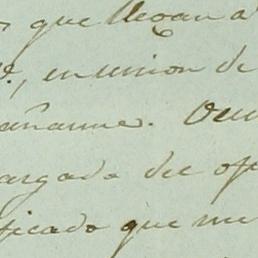 que llegan a
en union de
mañanme. 
argada del of
ficado que me